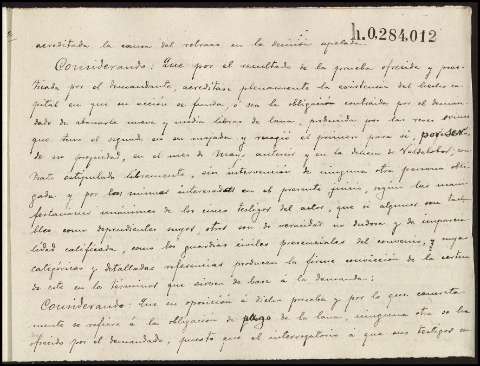 h.0.284,012
acreditada la causa del retraso en la decisión apelada.
Considerando: Que por el resultado de la prueba ofrecida y prac-
ticada por el demandante, acreditase plenamente la existencia del hecho ca-
pital en que su acción se funda, ó sea la obligación contraida por el deman-
dado de abonarle nueve y media libras de lana, producida por las reses ovinas
que tuvo el segundo en su majada y recogió el primero para sí, por ser
de su propiedad, en el mes de Mayo anterior y en la dehesa de Valdelobos, con-
trato estipulado libremente, sin intervención de ninguna otra persona obli-
gada y por los mismos interesados en el presente juicio, segun las mani-
festaciones unánimes de los cinco testigos del actor, que si algunos son tacha-
bles como dependientes suyos, otros son de veracidad no dudosa y de imparcia-
lidad calificada, como los guardias civiles presenciales del convenio, y cuyas
categóricas y detalladas referencias producen la firme convicción de la certeza
de este en los términos que sirven de base á la demanda;
Considerando: Que en oposición á dicha prueba y por lo que concreta-
mente se refiere á la obligación de pago de la lana, ninguna otra se ha
ofrecido por el demandado, puesto que el interrogatorio á que sus testigos